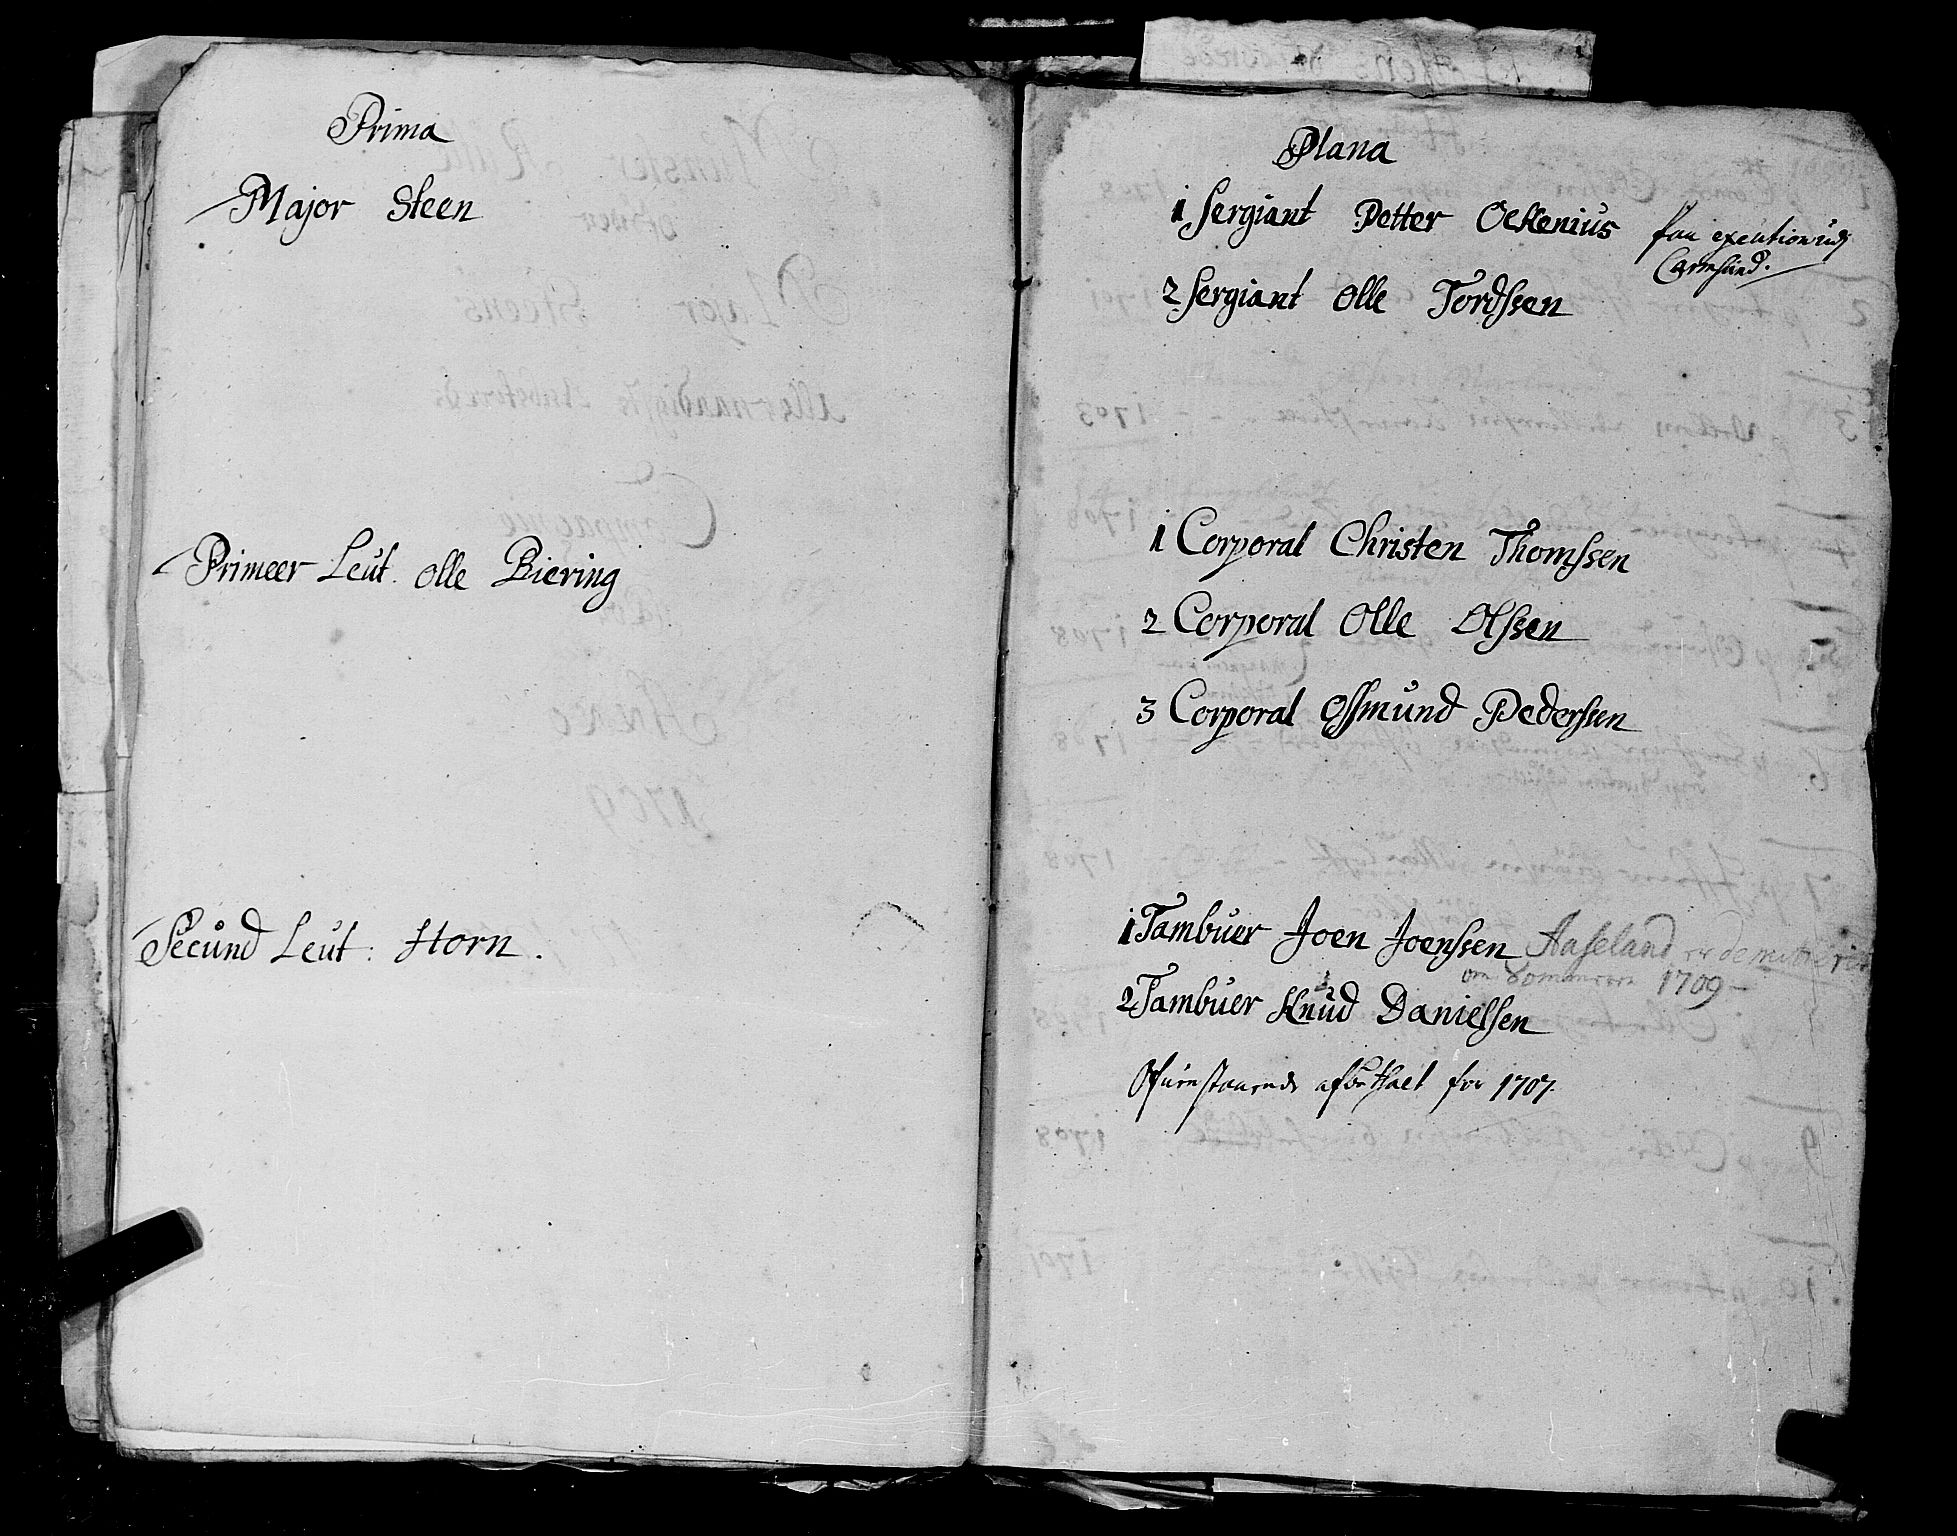 Prima
Major Steen
Primeer Leut. Olle Biering
Secund Leut: Horn.
Plana
1 Sergiant Petter Ockenius paa execution udj
Carmsund.
2 Sergiant Olle Tordssen
1 Corporal Christen Thomssen
2 Corporal Olle Olssen
3 Corporal Ossmund Pederssen
1 Tambuer Joen Joenssen Aaseland er
om Sommeren 1709
2 Tambuer Knud Danielssen
Ofuenstaaende afbethalt for 1707.